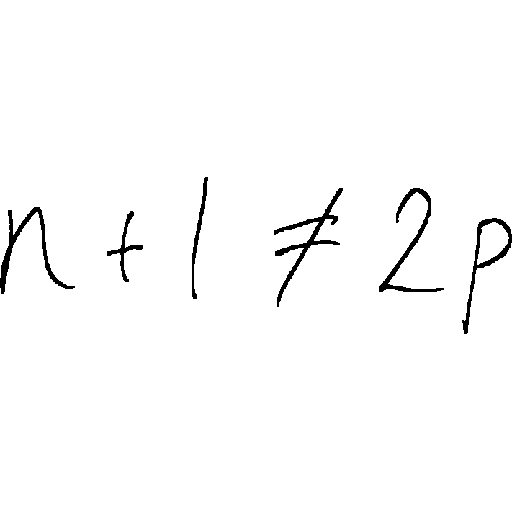 n + 1 ≠ 2p